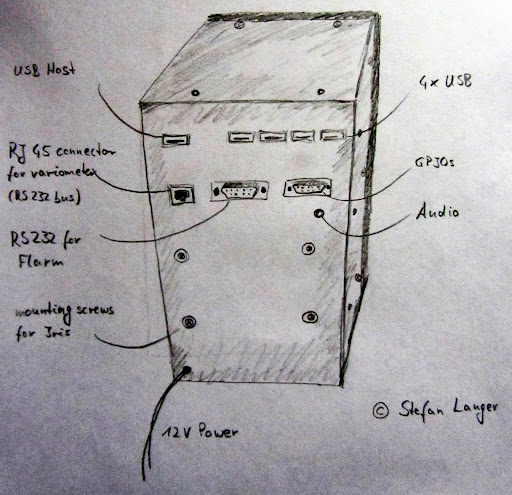 USB Host
4x USB
RJ 45 connector
for variometer
(RS232 bus)
GPIOs
Audio
RS232 for
Flarm
mounting screws
for Iris
12V Power
© Stefan Langer